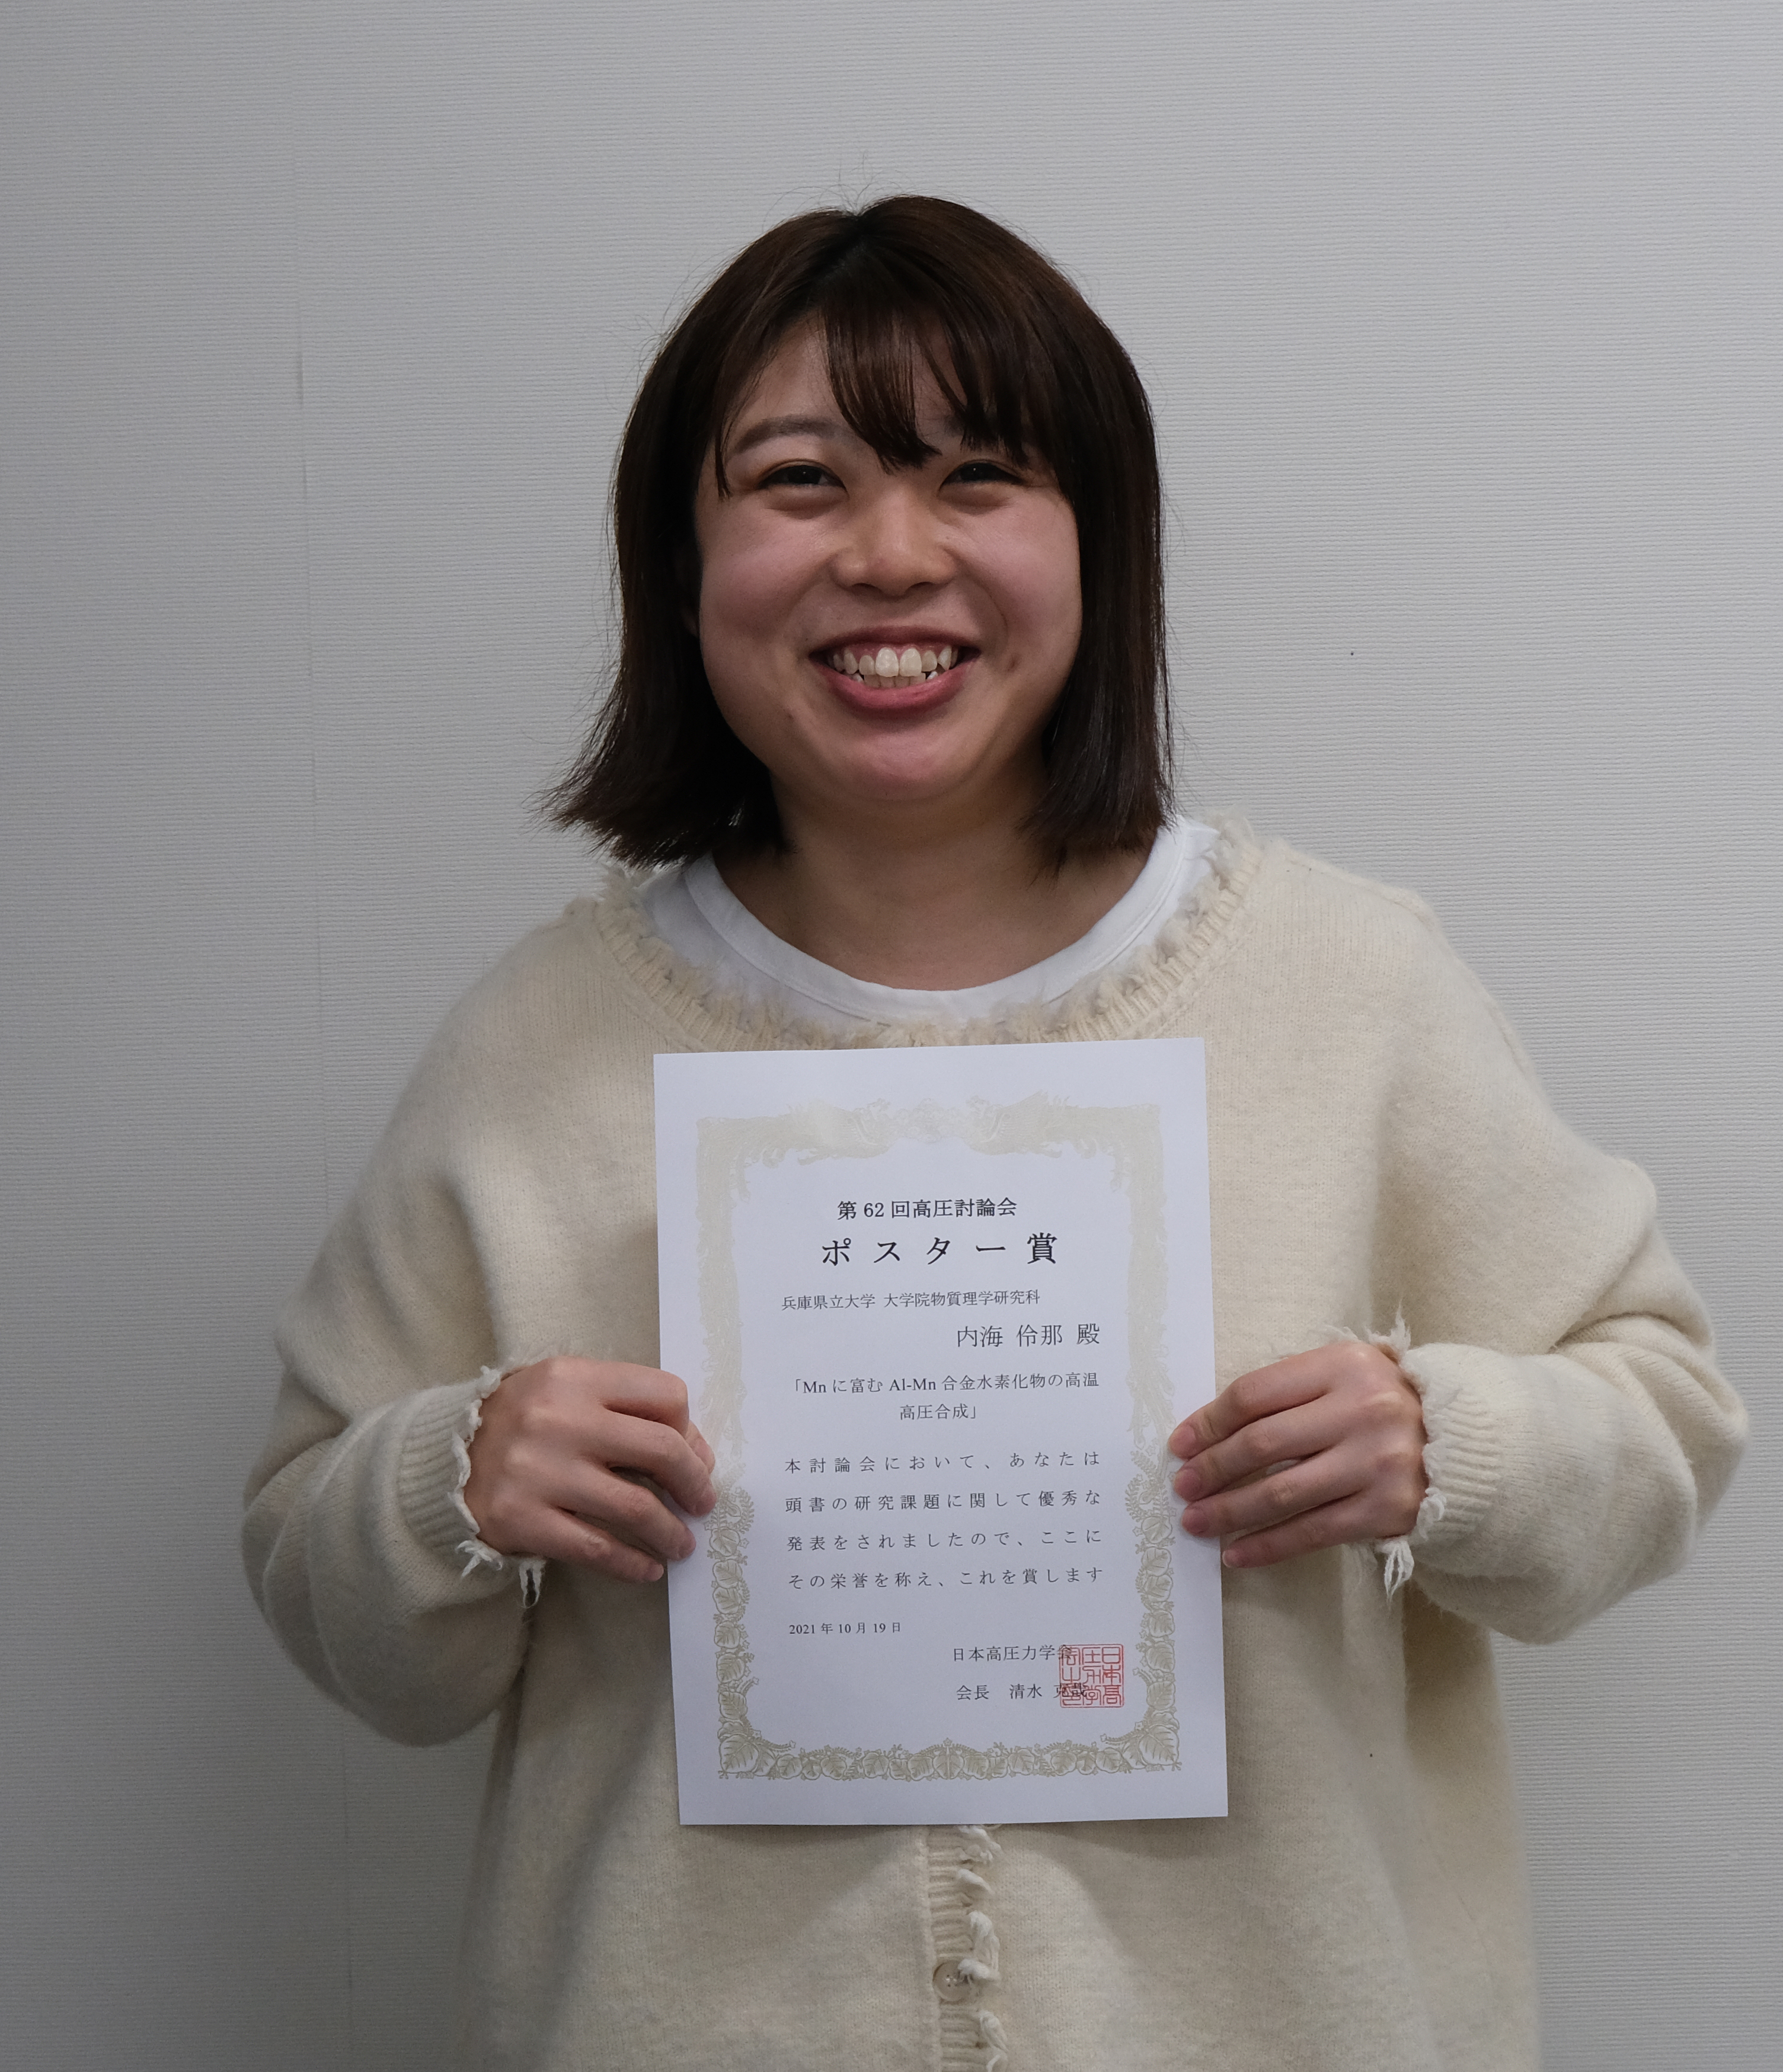 第 62 回高圧討論会
ポスター賞
兵庫県立大学 大学院物質理学研究科
内海 伶那 殿
「Mn に富む Al-Mn 合金水素化物の高温
高圧合成」
本討論会において、あなたは
頭書の研究課題に関して優秀な
発表をされましたので、ここに
その栄誉を称え、これを賞します
2021 年 10 月 19 日
日本高圧力学会
会長 清水 克哉